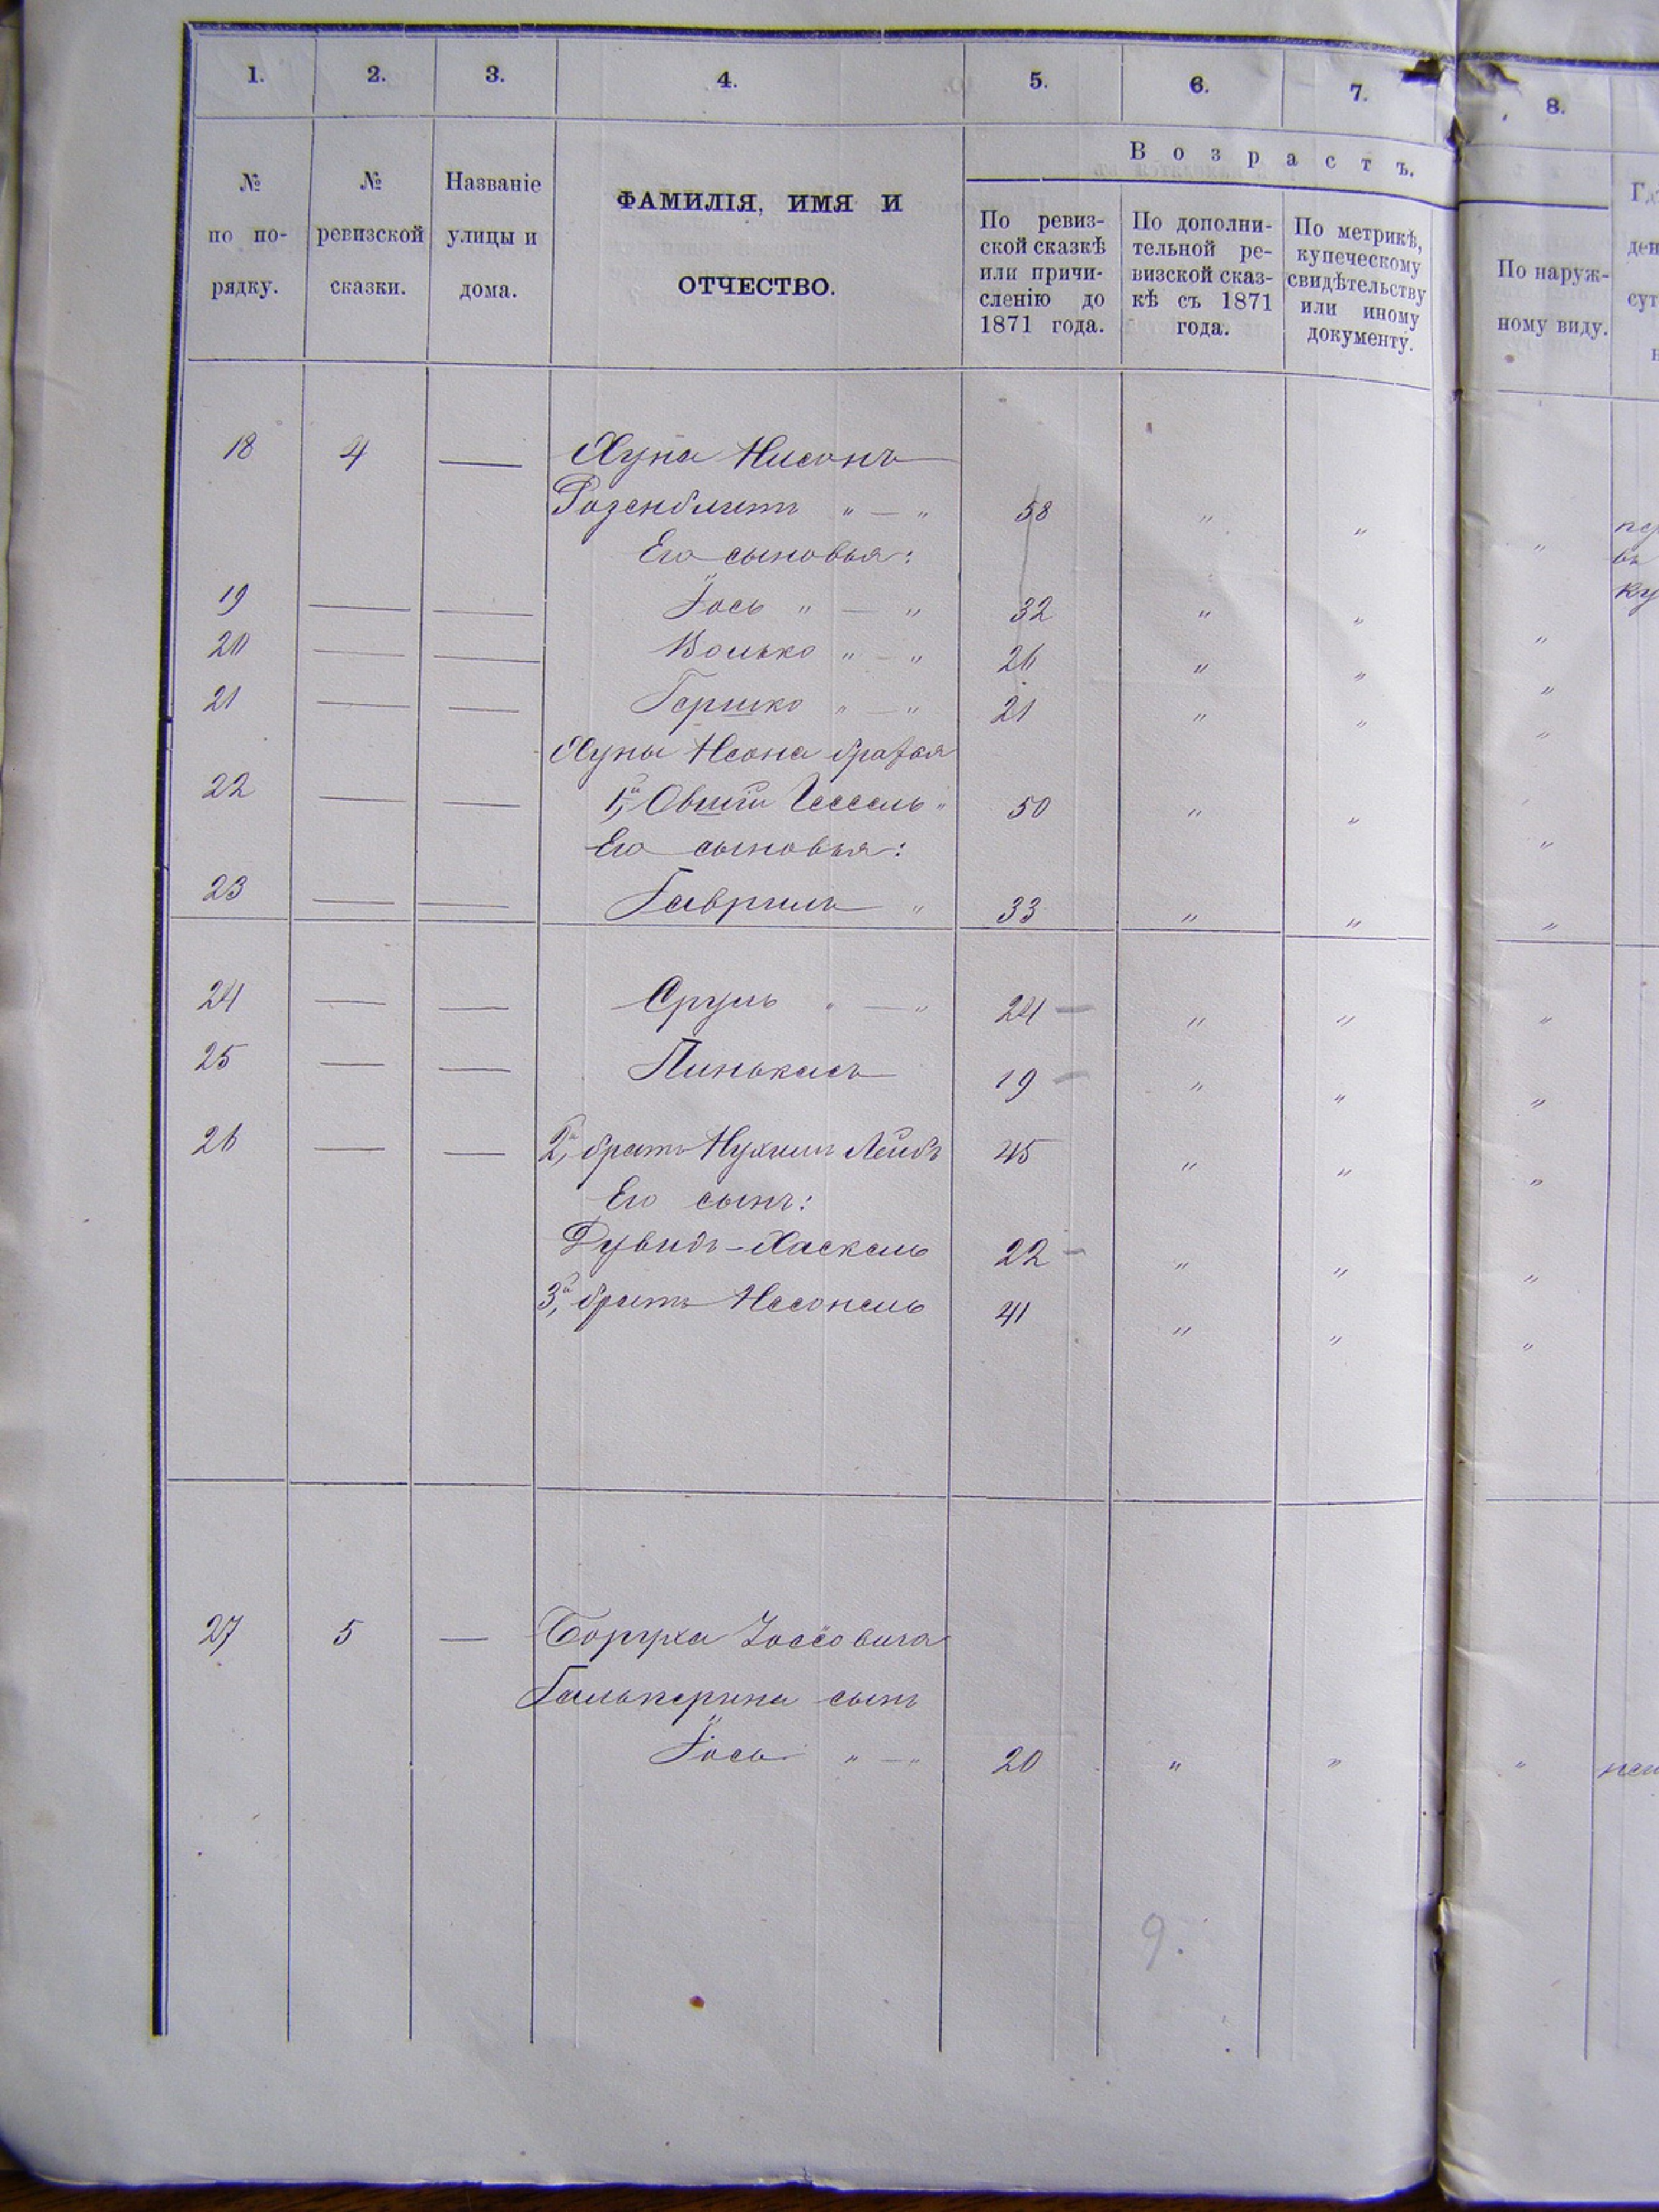 1. 2. 3. 4. 5. 6. 7. 8.
№ по по-рядку.
№ ревизской сказки.
Названіе улицы и дома.
ФАМИЛІЯ, ИМЯ И
ОТЧЕСТВО.
Возрастъ.
По ревиз-
ской сказкѣ
или причи-
сленію до
1871 года.
По дополни-
тельной ре-
визской сказ-
кѣ съ 1871
года.
По метрикѣ,
купеческому
свидѣтельству
или иному
документу.
По наруж-
ному виду.
18 4 — Хуна Нисонъ
Розенблитъ " — " 58 " " "
Его сыновья:
19 — — Іось " — " 32 " " "
20 — — Волько " — " 26 " " "
21 — — Гершко " — " 21 " " "
Хуны Нсона братья
22 — — 1й, Овшій " 50 " " "
Его сыновья:
23 — — Гавриль " 33 " " "
24 — — Сруль " — " 24 — " " "
25 — — Пинькасъ 19 — " " "
26 — — 2й, братъ Нухимъ Лейбъ 45 " " "
Его сынъ:
Дувидъ-Хаскель 22 — " " "
3й, братъ 41 " " "
27 5 — Боруха Іоссовича
Гальперина сынъ
Іось " — " 20 " " "
9.